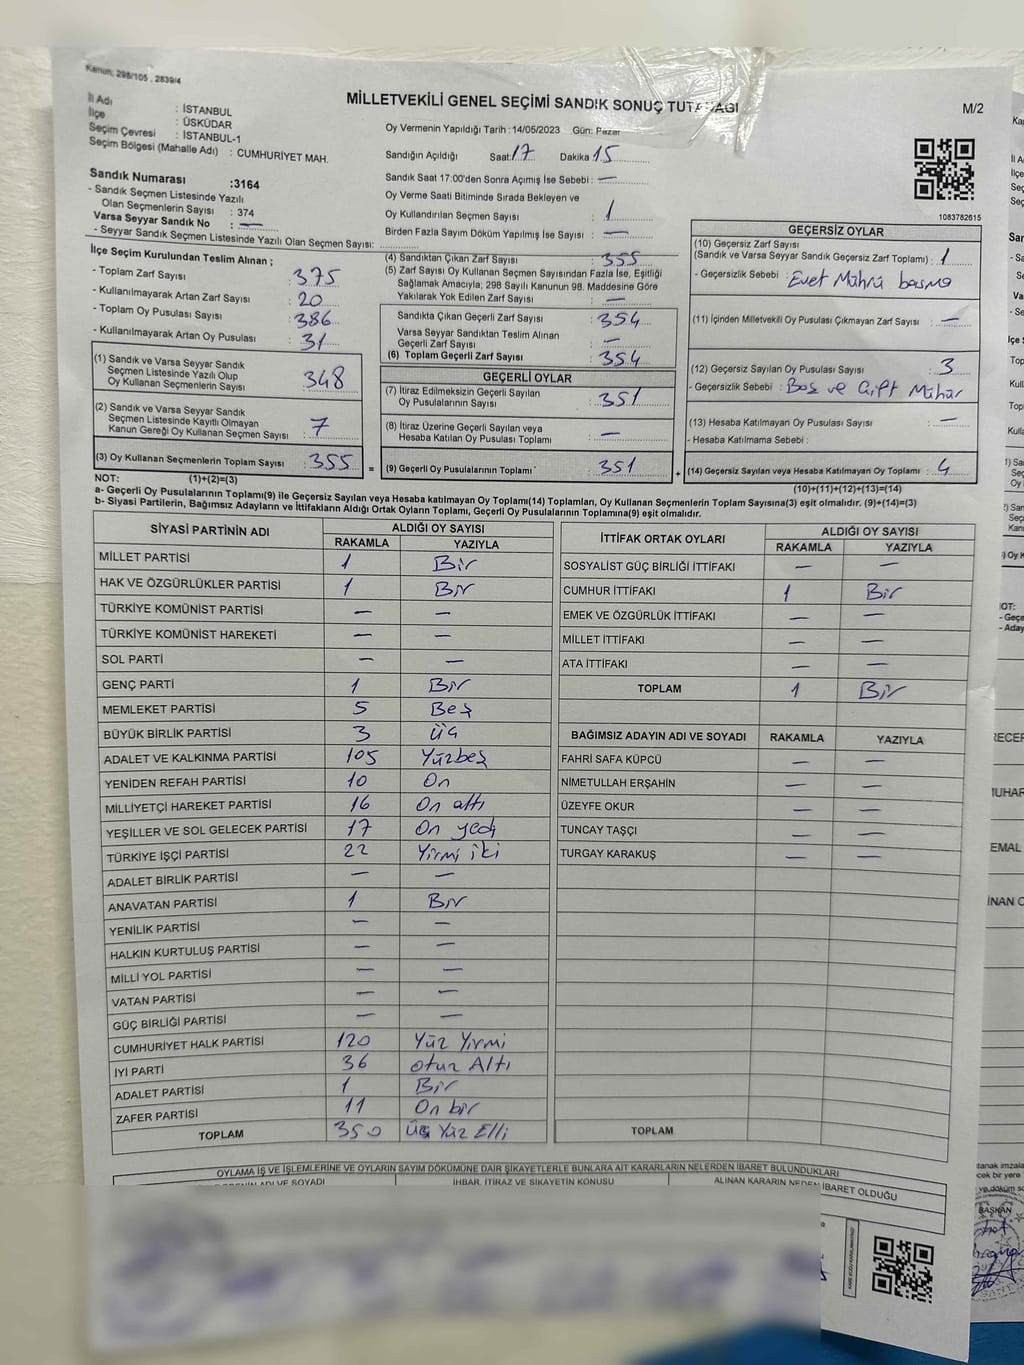 Kanun; 298/105 , 2839/4
MİLLETVEKİLİ GENEL SEÇİMİ SANDIK SONUÇ TUTANAĞI
M/2
İl Adı : İSTANBUL
İlçe : ÜSKÜDAR
Seçim Çevresi : İSTANBUL-1
Seçim Bölgesi (Mahalle Adı) : CUMHURİYET MAH.
Oy Vermenin Yapıldığı Tarih : 14/05/2023 Gün: Pazar
Sandığın Açıldığı Saat: 17 Dakika 15
Sandık Saat 17:00'den Sonra Açımış İse Sebebi : —
Oy Verme Saati Bitiminde Sırada Bekleyen ve
Oy Kullandırılan Seçmen Sayısı : 1
Birden Fazla Sayım Döküm Yapılmış İse Sayısı : —
1083782615
Sandık Numarası :3164
- Sandık Seçmen Listesinde Yazılı
Olan Seçmenlerin Sayısı : 374
Varsa Seyyar Sandık No : —
- Seyyar Sandık Seçmen Listesinde Yazılı Olan Seçmen Sayısı:
İlçe Seçim Kurulundan Teslim Alınan ;
- Toplam Zarf Sayısı : 375
- Kullanılmayarak Artan Zarf Sayısı : 20
- Toplam Oy Pusulası Sayısı : 386
- Kullanılmayarak Artan Oy Pusulası : 31
(1) Sandık ve Varsa Seyyar Sandık
Seçmen Listesinde Yazılı Olup
Oy Kullanan Seçmenlerin Sayısı : 348
(2) Sandık ve Varsa Seyyar Sandık
Seçmen Listesinde Kayıtlı Olmayan
Kanun Gereği Oy Kullanan Seçmen Sayısı : 7
(3) Oy Kullanan Seçmenlerin Toplam Sayısı : 355
(4) Sandıktan Çıkan Zarf Sayısı : 355
(5) Zarf Sayısı Oy Kullanan Seçmen Sayısından Fazla İse, Eşitliği
Sağlamak Amacıyla; 298 Sayılı Kanunun 98. Maddesine Göre
Yakılarak Yok Edilen Zarf Sayısı : —
Sandıkta Çıkan Geçerli Zarf Sayısı : 354
Varsa Seyyar Sandıktan Teslim Alınan
Geçerli Zarf Sayısı : —
(6) Toplam Geçerli Zarf Sayısı : 354
GEÇERLİ OYLAR
(7) İtiraz Edilmeksizin Geçerli Sayılan
Oy Pusulalarının Sayısı : 351
(8) İtiraz Üzerine Geçerli Sayılan veya
Hesaba Katılan Oy Pusulası Toplamı : —
= (9) Geçerli Oy Pusulalarının Toplamı : 351
GEÇERSİZ OYLAR
(10) Geçersiz Zarf Sayısı
(Sandık ve Varsa Seyyar Sandık Geçersiz Zarf Toplamı) : 1
- Geçersizlik Sebebi : Evet Mührü basma
(11) İçinden Milletvekili Oy Pusulası Çıkmayan Zarf Sayısı : —
(12) Geçersiz Sayılan Oy Pusulası Sayısı : 3
- Geçersizlik Sebebi : Boş ve Çift Mühür
(13) Hesaba Katılmayan Oy Pusulası Sayısı : —
- Hesaba Katılmama Sebebi :
+ (14) Geçersiz Sayılan veya Hesaba Katılmayan Oy Toplamı : 4
NOT: (1)+(2)=(3)
(10)+(11)+(12)+(13)=(14)
a- Geçerli Oy Pusulalarının Toplamı(9) ile Geçersiz Sayılan veya Hesaba katılmayan Oy Toplamı(14) Toplamları, Oy Kullanan Seçmenlerin Toplam Sayısına(3) eşit olmalıdır. (9)+(14)=(3)
b- Siyasi Partilerin, Bağımsız Adayların ve İttifakların Aldığı Ortak Oyların Toplamı, Geçerli Oy Pusulalarının Toplamına(9) eşit olmalıdır.
SİYASİ PARTİNİN ADI ALDIĞI OY SAYISI
RAKAMLA YAZIYLA
MİLLET PARTİSİ 1 Bir
HAK VE ÖZGÜRLÜKLER PARTİSİ 1 Bir
TÜRKİYE KOMÜNİST PARTİSİ — —
TÜRKİYE KOMÜNİST HAREKETİ — —
SOL PARTİ — —
GENÇ PARTİ 1 Bir
MEMLEKET PARTİSİ 5 Beş
BÜYÜK BİRLİK PARTİSİ 3 üç
ADALET VE KALKINMA PARTİSİ 105 Yüzbeş
YENİDEN REFAH PARTİSİ 10 On
MİLLİYETÇİ HAREKET PARTİSİ 16 On altı
YEŞİLLER VE SOL GELECEK PARTİSİ 17 On yedi
TÜRKİYE İŞÇİ PARTİSİ 22 Yirmi iki
ADALET BİRLİK PARTİSİ — —
ANAVATAN PARTİSİ 1 Bir
YENİLİK PARTİSİ — —
HALKIN KURTULUŞ PARTİSİ — —
MİLLİ YOL PARTİSİ — —
VATAN PARTİSİ — —
GÜÇ BİRLİĞİ PARTİSİ — —
CUMHURİYET HALK PARTİSİ 120 Yüz Yirmi
İYİ PARTİ 36 otuz Altı
ADALET PARTİSİ 1 Bir
ZAFER PARTİSİ 11 On bir
TOPLAM 350 üç Yüz Elli
İTTİFAK ORTAK OYLARI ALDIĞI OY SAYISI
RAKAMLA YAZIYLA
SOSYALİST GÜÇ BİRLİĞİ İTTİFAKI — —
CUMHUR İTTİFAKI 1 Bir
EMEK VE ÖZGÜRLÜK İTTİFAKI — —
MİLLET İTTİFAKI — —
ATA İTTİFAKI — —
TOPLAM 1 Bir
BAĞIMSIZ ADAYIN ADI VE SOYADI RAKAMLA YAZIYLA
FAHRİ SAFA KÜPCÜ — —
NİMETULLAH ERŞAHİN — —
ÜZEYFE OKUR — —
TUNCAY TAŞÇI — —
TURGAY KARAKUŞ — —
TOPLAM
OYLAMA İŞ VE İŞLEMLERİNE VE OYLARIN SAYIM DÖKÜMÜNE DAİR ŞİKAYETLERLE BUNLARA AİT KARARLARIN NELERDEN İBARET BULUNDUKLARI
ADI VE SOYADI İHBAR, İTİRAZ VE ŞİKAYETİN KONUSU ALINAN KARARIN NEDEN İBARET OLDUĞU